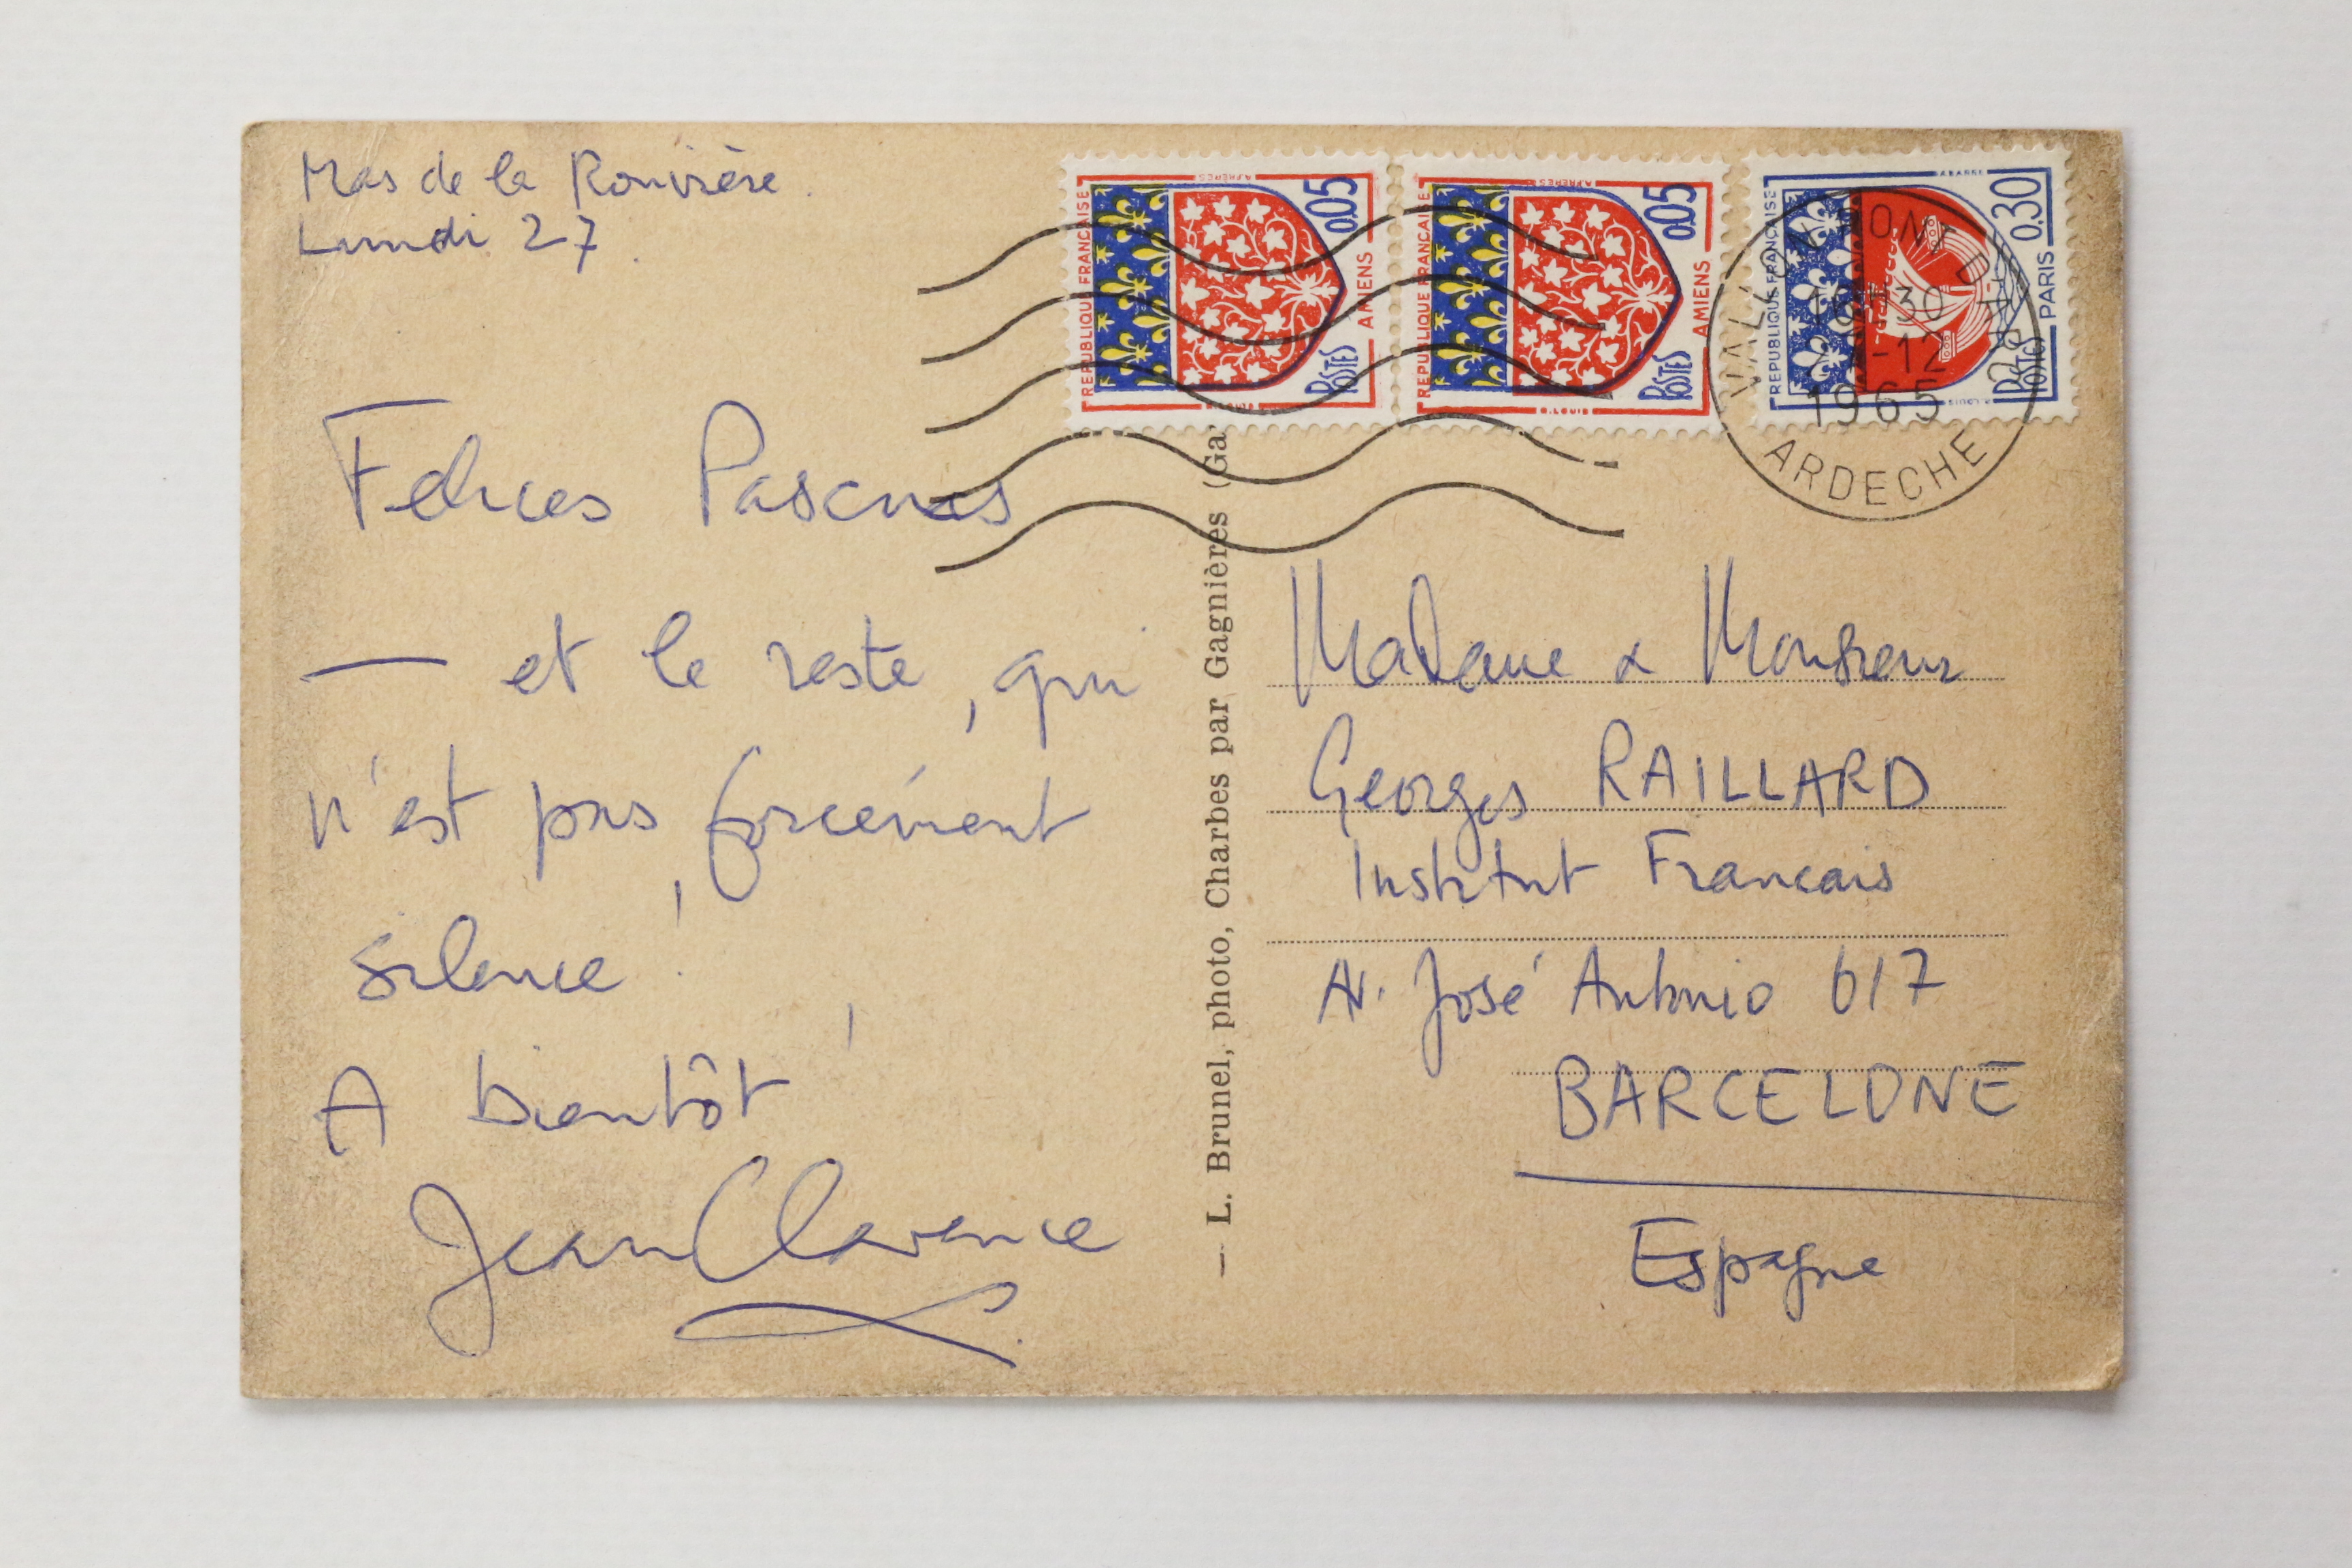 Mas de la Rouvière.
Lundi 27.
Felices Pascuas
— et le reste, qui
n'est pas, forcément
silence !
A bientôt !
Jean Clarence
— L. Brunel, photo, Charbes par Gagnières (Ga
REPUBLIQUE FRANÇAISE
0.05
POSTES
AMIENS
REPUBLIQUE FRANÇAISE
0.05
POSTES
AMIENS
REPUBLIQUE FRANÇAISE
0.30
POSTES
PARIS
VALLON PONT D'ARC
-12
1965
ARDECHE
Madame & Monsieur
Georges RAILLARD
Institut Francais
Av. José Antonio 617
BARCELONE
Espagne